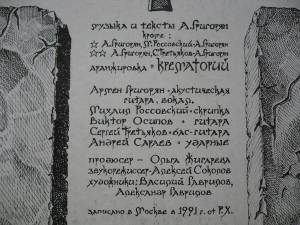 музыка и тексты А.Григорян
кроме:
☆ А.Григорян, М.Россовский-А.Григорян
☆☆ А.Григорян, С.Третьяков-А.Григорян
аранжировка • КРЕМАТОРИЙ
Армен Григорян - акустическая
гитара, вокал.
Михаил Россовский - скрипка
Виктор Осипов - гитара
Сергей Третьяков - бас-гитара
Андрей Сараев - ударные
продюсер - Ольга Жигарева
звукорежиссер - Алексей Соколов
художники: Василий Гаврилов,
Александр Гаврилов
записано в Москве в 1991 г. от Р.Х.